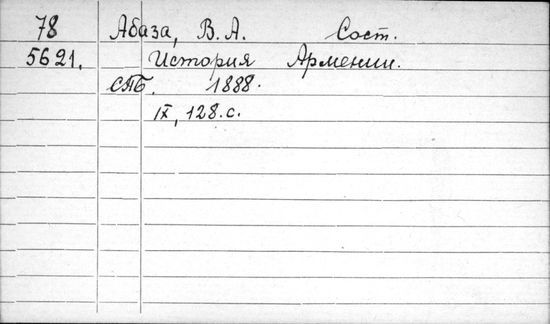 78 Абаза, В. А. Сост.
5621. История Армении.
СПБ. 1888.
IX, 128. с.